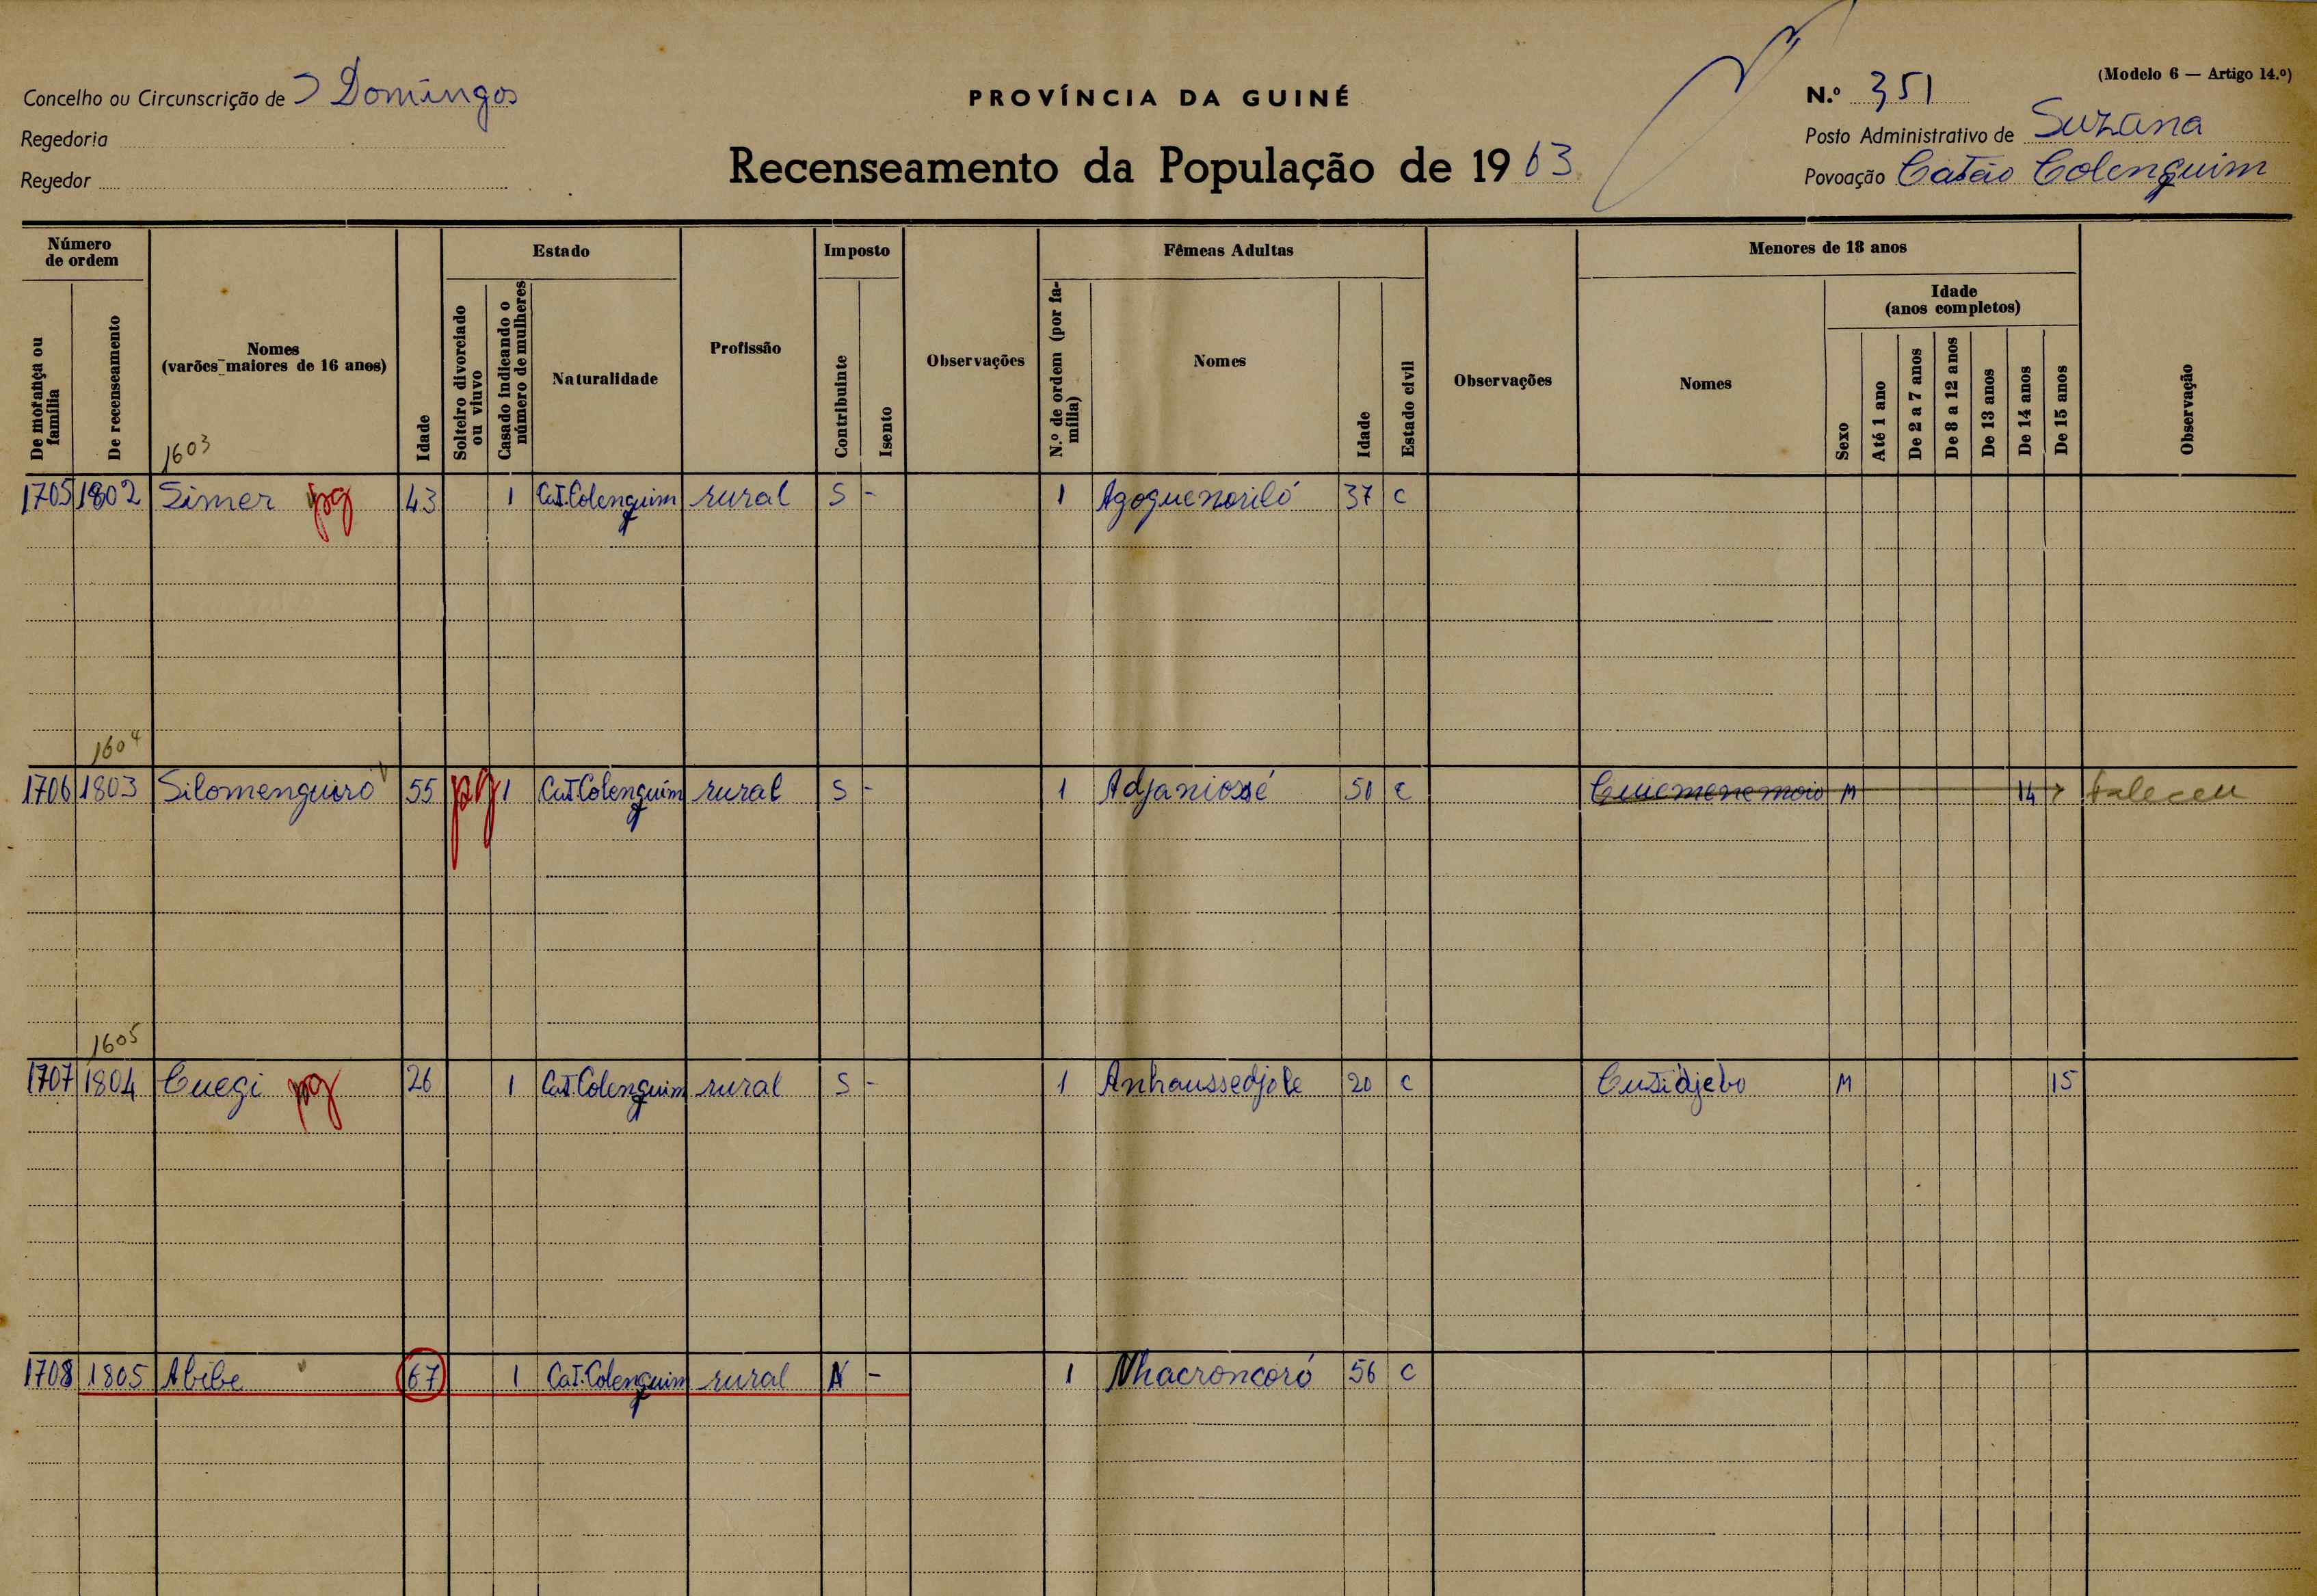 (Modelo 6 — Artigo 14.º)
Concelho ou Circunscrição de S Domingos
PROVÍNCIA DA GUINÉ
N.º 351
Regedoria
Posto Administrativo de Suzana
Regedor
Recenseamento da População de 1963
Povoação Catão Colenguim
Número de ordem
De morança ou família
De recenseamento
Nomes
(varões maiores de 16 anos)
Idade
Estado
Solteiro divorciado ou viuvo
Casado indicando o número de mulheres
Naturalidade
Profissão
Imposto
Contribuinte
Isento
Observações
Fêmeas Adultas
N.º de ordem (por família)
Nomes
Idade
Estado civil
Observações
Menores de 18 anos
Nomes
Idade
(anos completos)
Sexo
Até 1 ano
De 2 a 7 anos
De 8 a 12 anos
De 13 anos
De 14 anos
De 15 anos
Observação
1603
1705 1802 Simer pg 43 1 Cat.Colenguim rural S - 1 Agoquenoriló 37 C
1604
1706 1803 Silomenguiro 55 pg 1 Cat.Colenguim rural S - 1 Adjaniossé 50 C M 14 faleceu
1605
1707 1804 Cuegi pg 26 1 Cat.Colenguim rural S - 1 Anhaussedjole 20 C Cusidjebo M 15
1708 1805 Abibe 67 1 Cat.Colenguim rural N - 1 Nhacroncoró 56 C